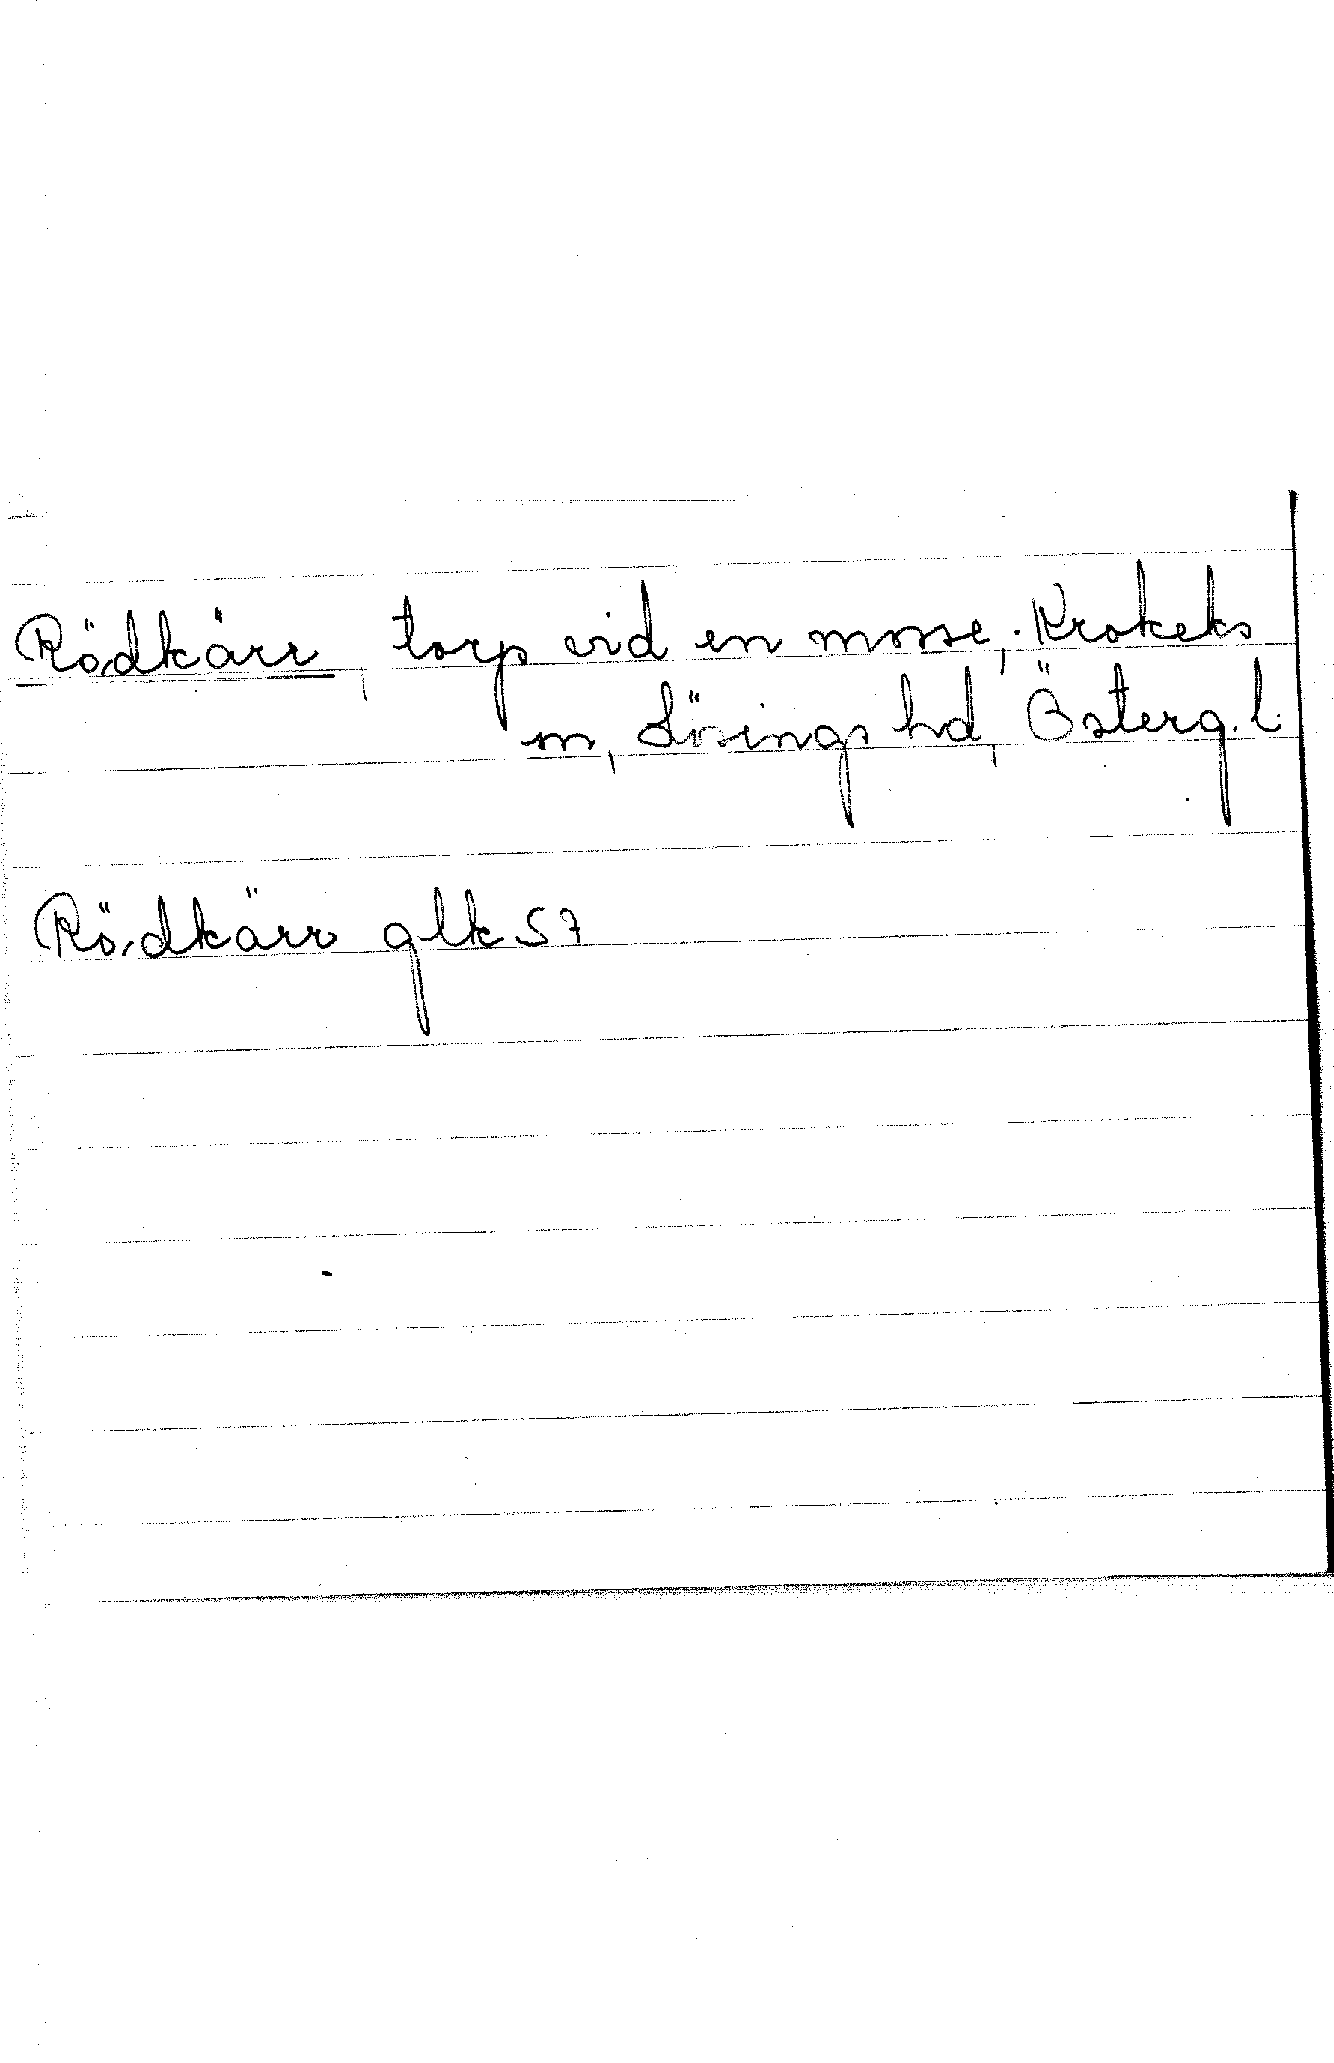 Rödkärr, torp vid en mosse, Krokeks
sn, Lösings hd, Österg. l.
Rödkärr glk 57